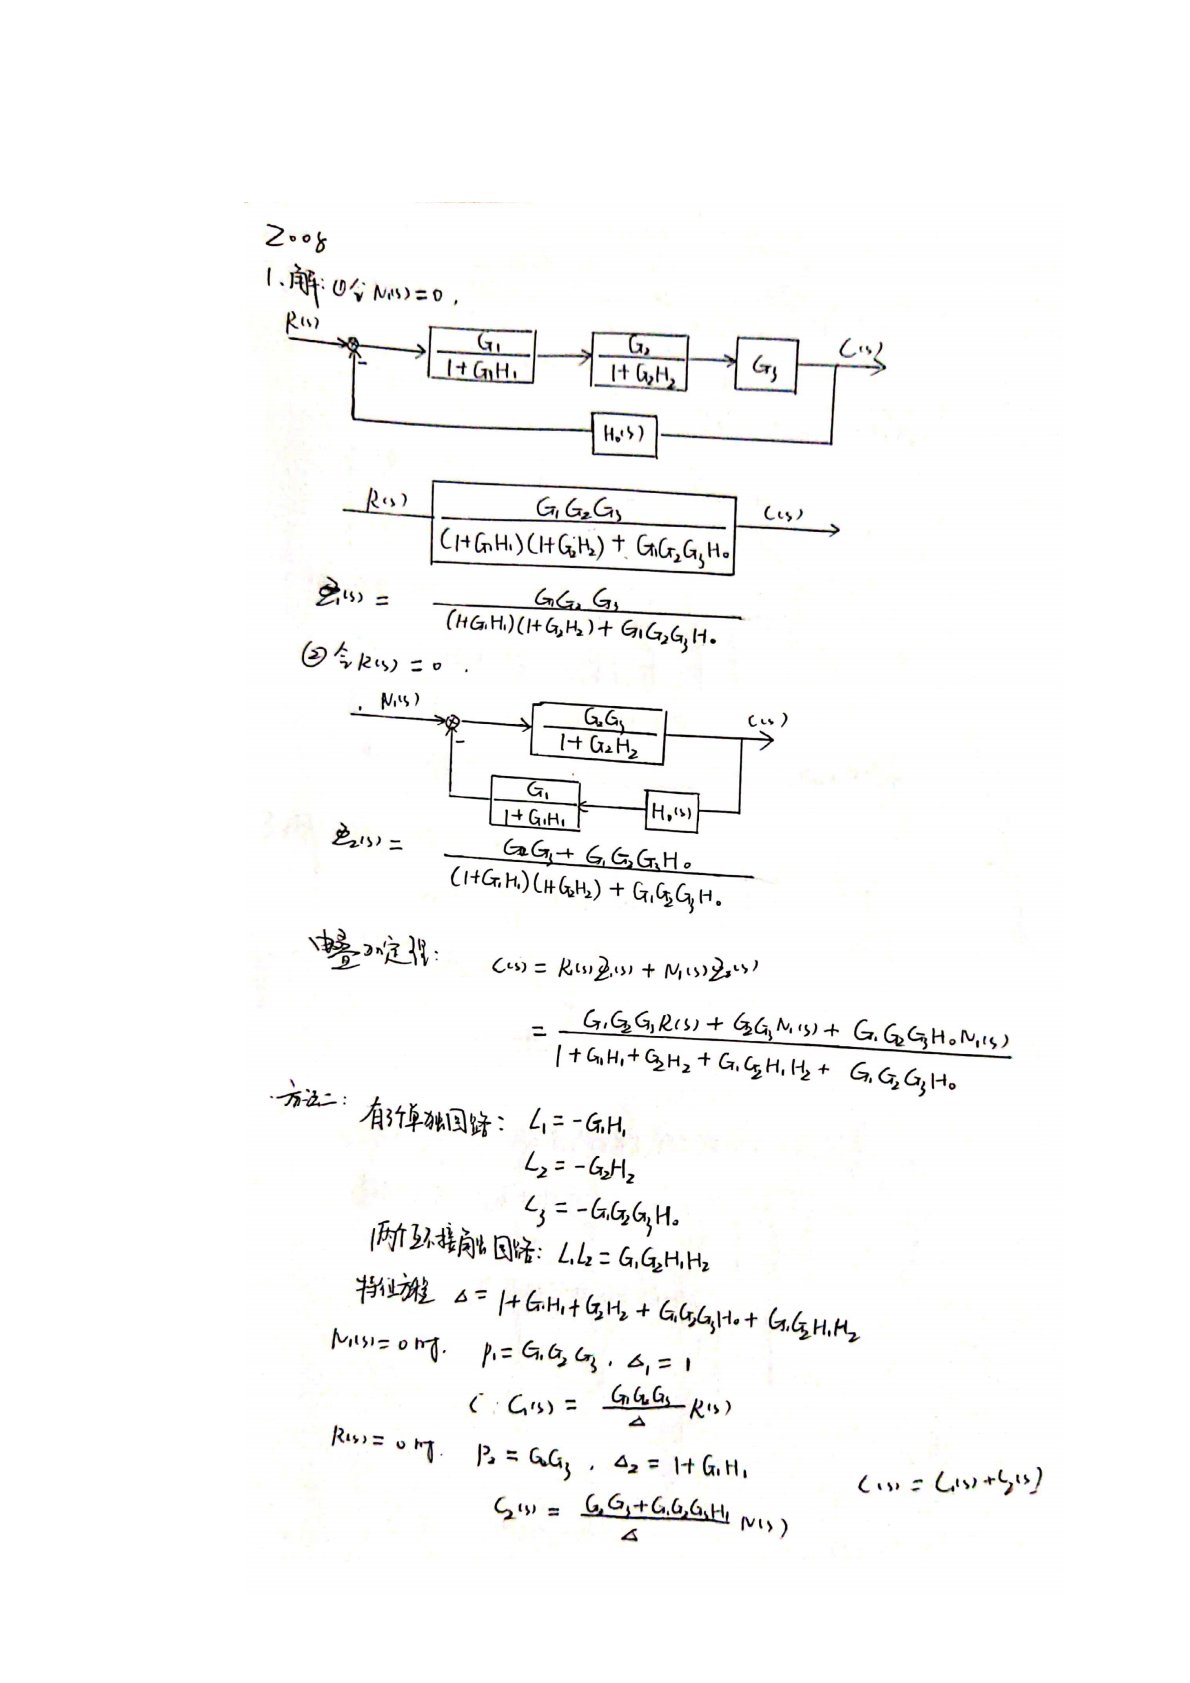 2008
1、解：①令 N₁(s)=0，
R(s)
G₁/(1+G₁H₁)
G₂/(1+G₂H₂)
G₃
C(s)
-
H₀(s)
R(s)
G₁G₂G₃/((1+G₁H₁)(1+G₂H₂)+G₁G₂G₃H₀)
C(s)
Φ₁(s) = G₁G₂G₃/((1+G₁H₁)(1+G₂H₂)+G₁G₂G₃H₀)
②令R(s)=0.
N₁(s)
G₂G₃/(1+G₂H₂)
C(s)
-
G₁/(1+G₁H₁)
H₀(s)
Φ₂(s) = (G₂G₃+G₁G₂G₃H₀)/((1+G₁H₁)(1+G₂H₂)+G₁G₂G₃H₀)
由叠加定理: C(s)=R(s)Φ₁(s)+N₁(s)Φ₂(s)
= (G₁G₂G₃R(s)+G₂G₃N₁(s)+G₁G₂G₃H₀N₁(s))/(1+G₁H₁+G₂H₂+G₁G₂H₁H₂+G₁G₂G₃H₀)
方法二: 有3个单独回路: L₁=-G₁H₁
L₂=-G₂H₂
L₃=-G₁G₂G₃H₀
两个互不接触回路: L₁L₂=G₁G₂H₁H₂
特征方程 Δ=1+G₁H₁+G₂H₂+G₁G₂G₃H₀+G₁G₂H₁H₂
N₁(s)=0时. P₁=G₁G₂G₃. Δ₁=1
C₁(s) = G₁G₂G₃/Δ R(s)
R(s)=0时. P₂=G₂G₃. Δ₂=1+G₁H₁
C(s)=C₁(s)+C₂(s)
C₂(s) = (G₂G₃+G₁G₂G₃H₁)/Δ N(s)